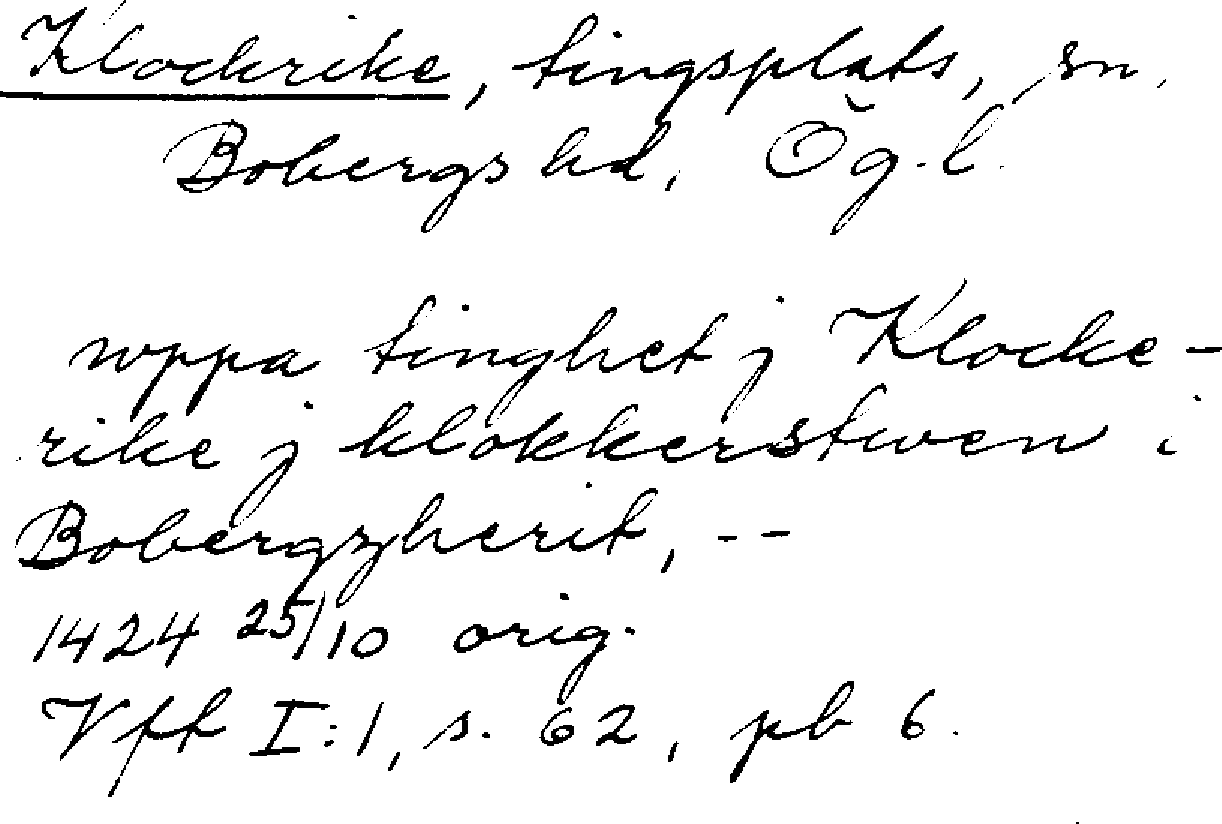 Klockrike, tingsplats, sn,
Bobergs hd, Ög.l.
wppa tinghet j Klocke-
rike j klokkerstwen i
Bobergzherit, --
1424 25/10 orig.
Vff I:1, s. 62, pb 6.